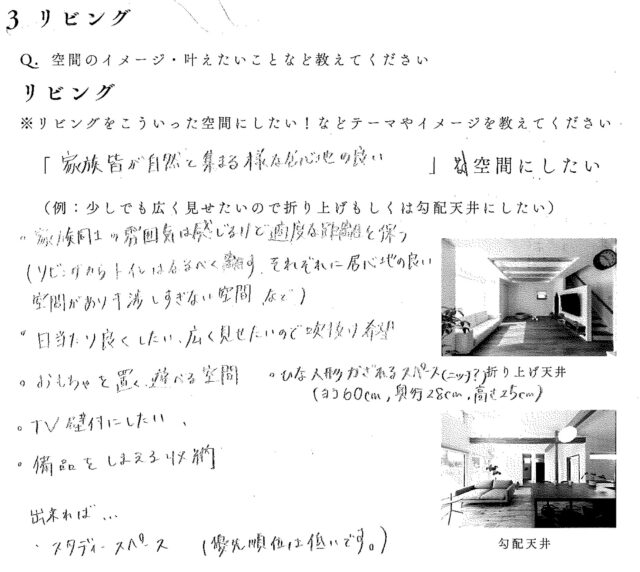 3 リビング
Q. 空間のイメージ・叶えたいことなど教えてください
リビング
※リビングをこういった空間にしたい！などテーマやイメージを教えてください
「 家族皆が自然と集まる様な居心地の良い 」 空間にしたい
（例：少しでも広く見せたいので折り上げもしくは勾配天井にしたい）
。家族同士の雰囲気は感じるけど適度な距離を保つ
(リビングからトイレはなるべく離す、それぞれに居心地の良い
空間があり干渉しすぎない空間 など)
。日当たり良くしたい、広く見せたいので吹抜け希望
。おもちゃを置く、遊べる空間
。ひな人形かざれるスペース(ニッチ?)
折り上げ天井
(ヨコ60cm, 奥行28cm, 高さ25cm)
。TV壁付にしたい、
。備品をしまえる収納
出来れば…
・スタディースペース (優先順位は低いです。)
勾配天井